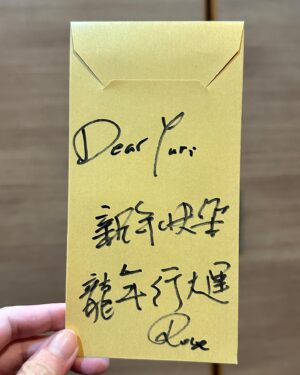 Dear Yuri
新年快樂
龍年行大運
Rose